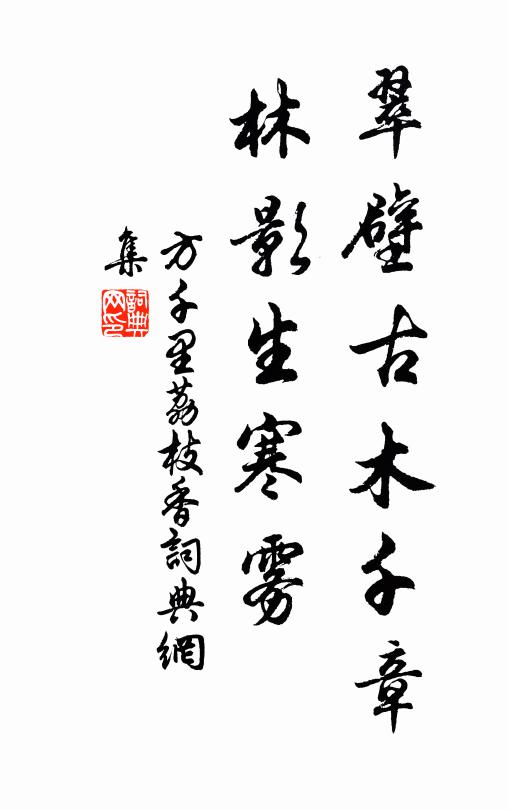 翠壁古木千章
林影生寒雾
方千里荔枝香詞典網
集
詞典网印